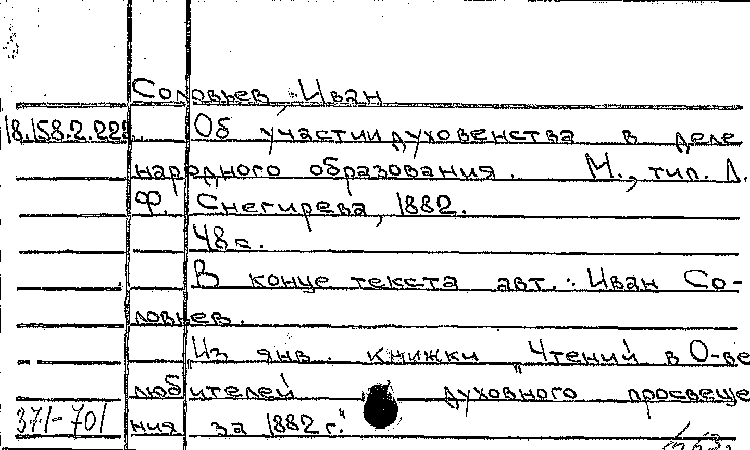 Соловьев, Иван
18.158.2.228. Об участии духовенства в деле
народного образования. М., тип. Л.
Ф. Снегирева, 1882.
48 с.
В конце текста авт.: Иван Со-
ловьев.
"Из янв. книжки "Чтений в О-ве
любителей духовного просвеще
371-701 ния за 1882 г."